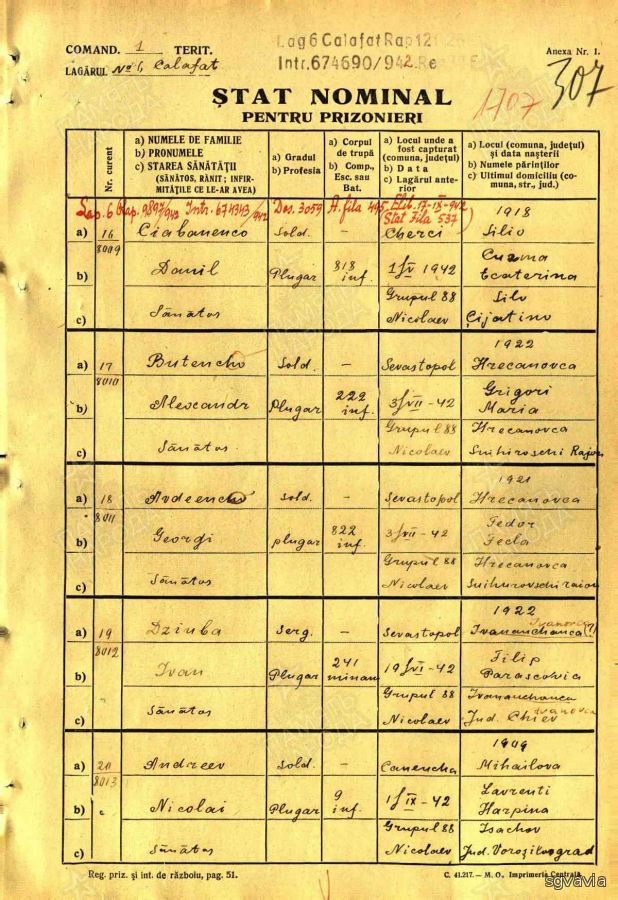 COMAND. 1 TERIT.
LAGĂRUL No 6, Calafat
Lag 6 Calafat Rap 121
Intr. 674690/942
Anexa Nr. 1.
307
1707
ȘTAT NOMINAL
PENTRU PRIZONIERI
Nr. curent
a) NUMELE DE FAMILIE
b) PRONUMELE
c) STAREA SĂNĂTĂȚII
(SĂNĂTOS, RĂNIT; INFIR-
MITĂȚILE CE LE-AR AVEA)
a) Gradul
b) Profesia
a) Corpul
de trupă
b) Comp.,
Esc. sau
Bat.
a) Locul unde a
fost capturat
(comuna, județul)
b) Data
c) Lagărul ante-
rior
a) Locul (comuna, județul)
și data nașterii
b) Numele părinților
c) Ultimul domiciliu (co-
muna, str., jud.)
Lag. 6 Rap. 9897/943 Intr. 674343/942 Dos. 3059 A. fila 495 Elib. 17-IX-942
Stat Fila 537
1918
a) 16 Ciabanenco Sold. – Cherci Siliv
8009
Cuzma
b) Danil Plugar 818 inf. 1/IV 1942 Ecaterina
Grupul 88 Silv
c) Sănătos Nicolaev Cijatino
1922
a) 17 Butencho Sold. – Sevastopol Hrecanovca
8010
Grigori
b) Alexcandr Plugar 222 inf. 3/VII - 42 Maria
Grupul 88 Hrecanovca
c) Sănătos Nicolaev Snihiroschi Rajon
1921
a) 18 Avdeencho Sold. – Sevastopol Hrecanovca
8011
Fedor
b) Georgi plugar 822 inf. 3/VII - 42 Fecla
Grupul 88 Hrecanovca
c) Sănătos Nicolaev Snihurovschi raion
1922
Ivanovca
a) 19 Dziuba Serg. – Sevastopol Ivananchanca (?)
8012
Filip
b) Ivan Plugar 241 minam 19/VI - 42 Parascovia
Grupul 88 Ivananchanca
Ivanovca
c) Sănătos Nicolaev Jud. Chiev
1909
a) 20 Andreev Sold. – Canencha Mihailova
8013
Lavrenti
b) Nicolai Plugar 9 inf. 1/IX - 42 Harpina
Grupul 88 Isachov
c) Sănătos Nicolaev Jud. Voroșilovgrad
Reg. priz. și int. de războiu, pag. 51.
C. 41.217. – M. O., Imprimeria Centrală.
sgvavia